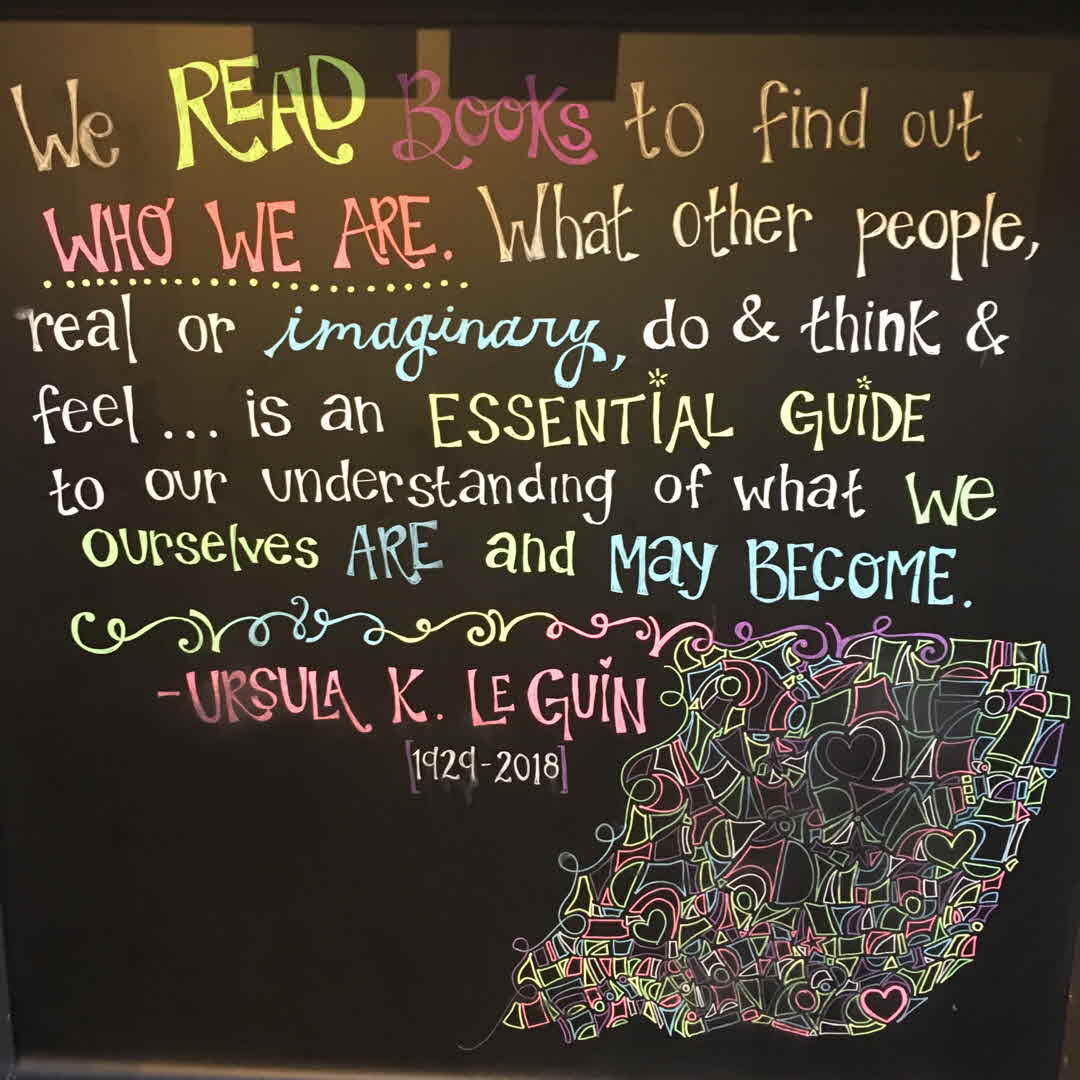 We READ Books to find out
WHO WE ARE. What other people,
real or imaginary, do & think &
feel... is an ESSENTIAL GUIDE
to our understanding of what we
ourselves ARE and MAY BECOME.
-URSULA K. LE GUIN
[1929-2018]